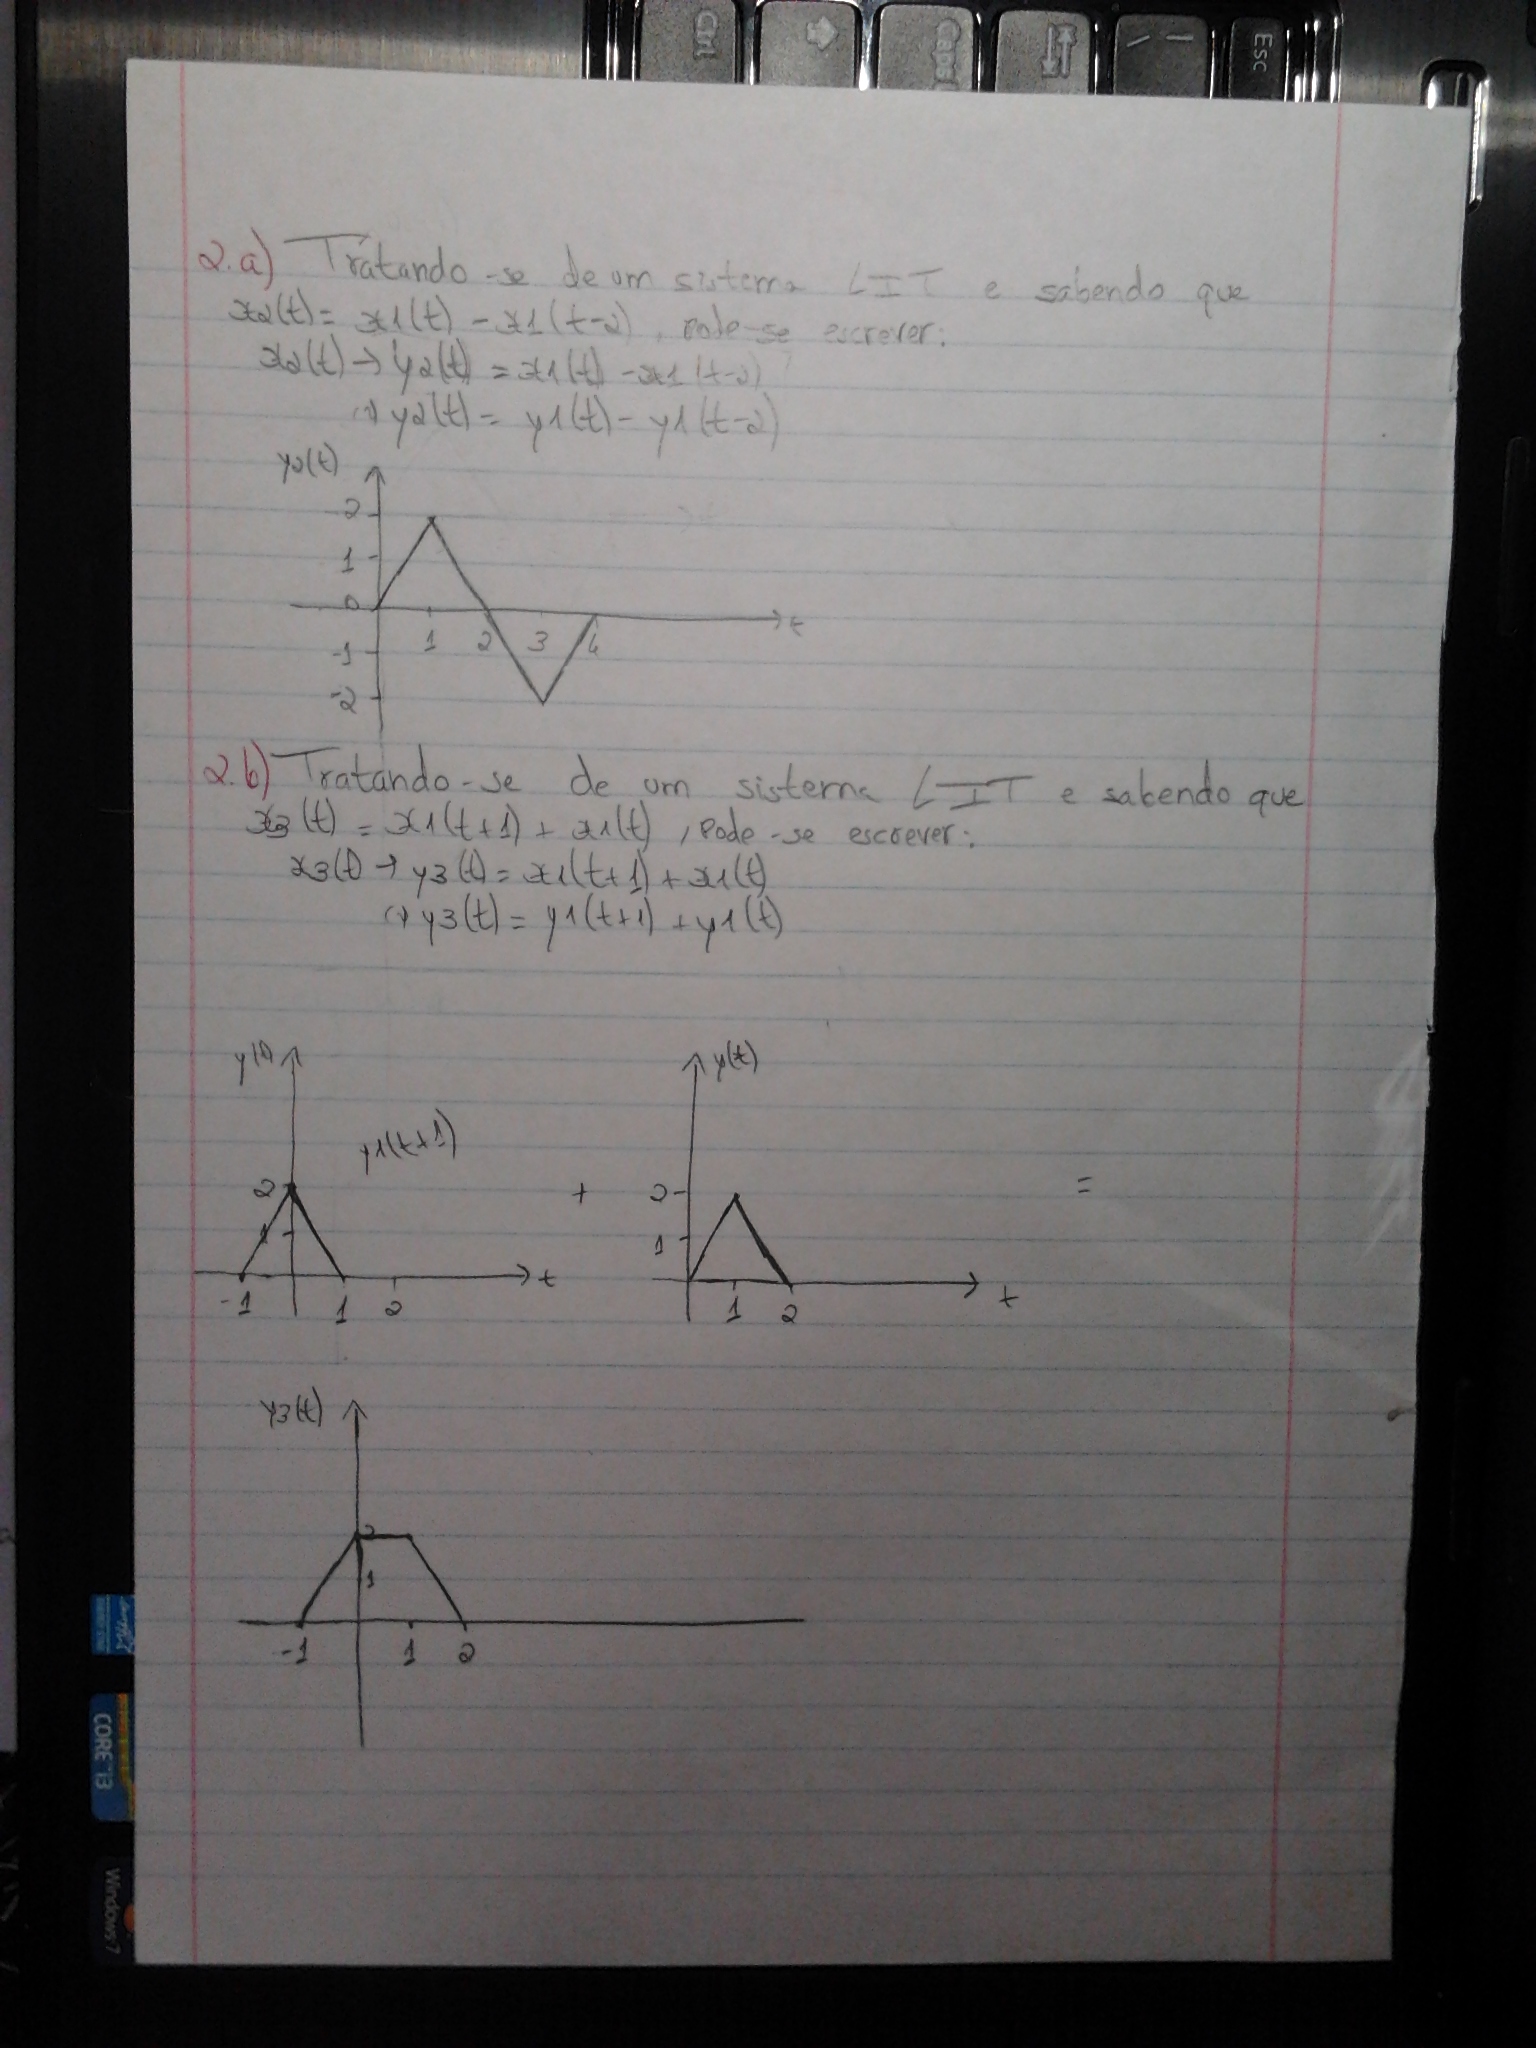 Ctrl
Caps
Esc
2.a) Tratando-se de um sistema LIT e sabendo que
x2(t) = x1(t) - x1(t-2), pode-se escrever:
x2(t) → y2(t) = x1(t) - x1(t-2)
y2(t) = y1(t) - y1(t-2)
y2(t)
2
1
0
1 2 3 4 t
-1
-2
2.b) Tratando-se de um sistema LIT e sabendo que
x3(t) = x1(t+1) + x1(t), pode-se escrever:
x3(t) → y3(t) = x1(t+1) + x1(t)
y3(t) = y1(t+1) + y1(t)
y(t) y(t)
y1(t+1)
2 + 2 =
1 1
t t
-1 1 2 1 2
y3(t)
2
1
-1 1 2
CORE i3
Windows 7